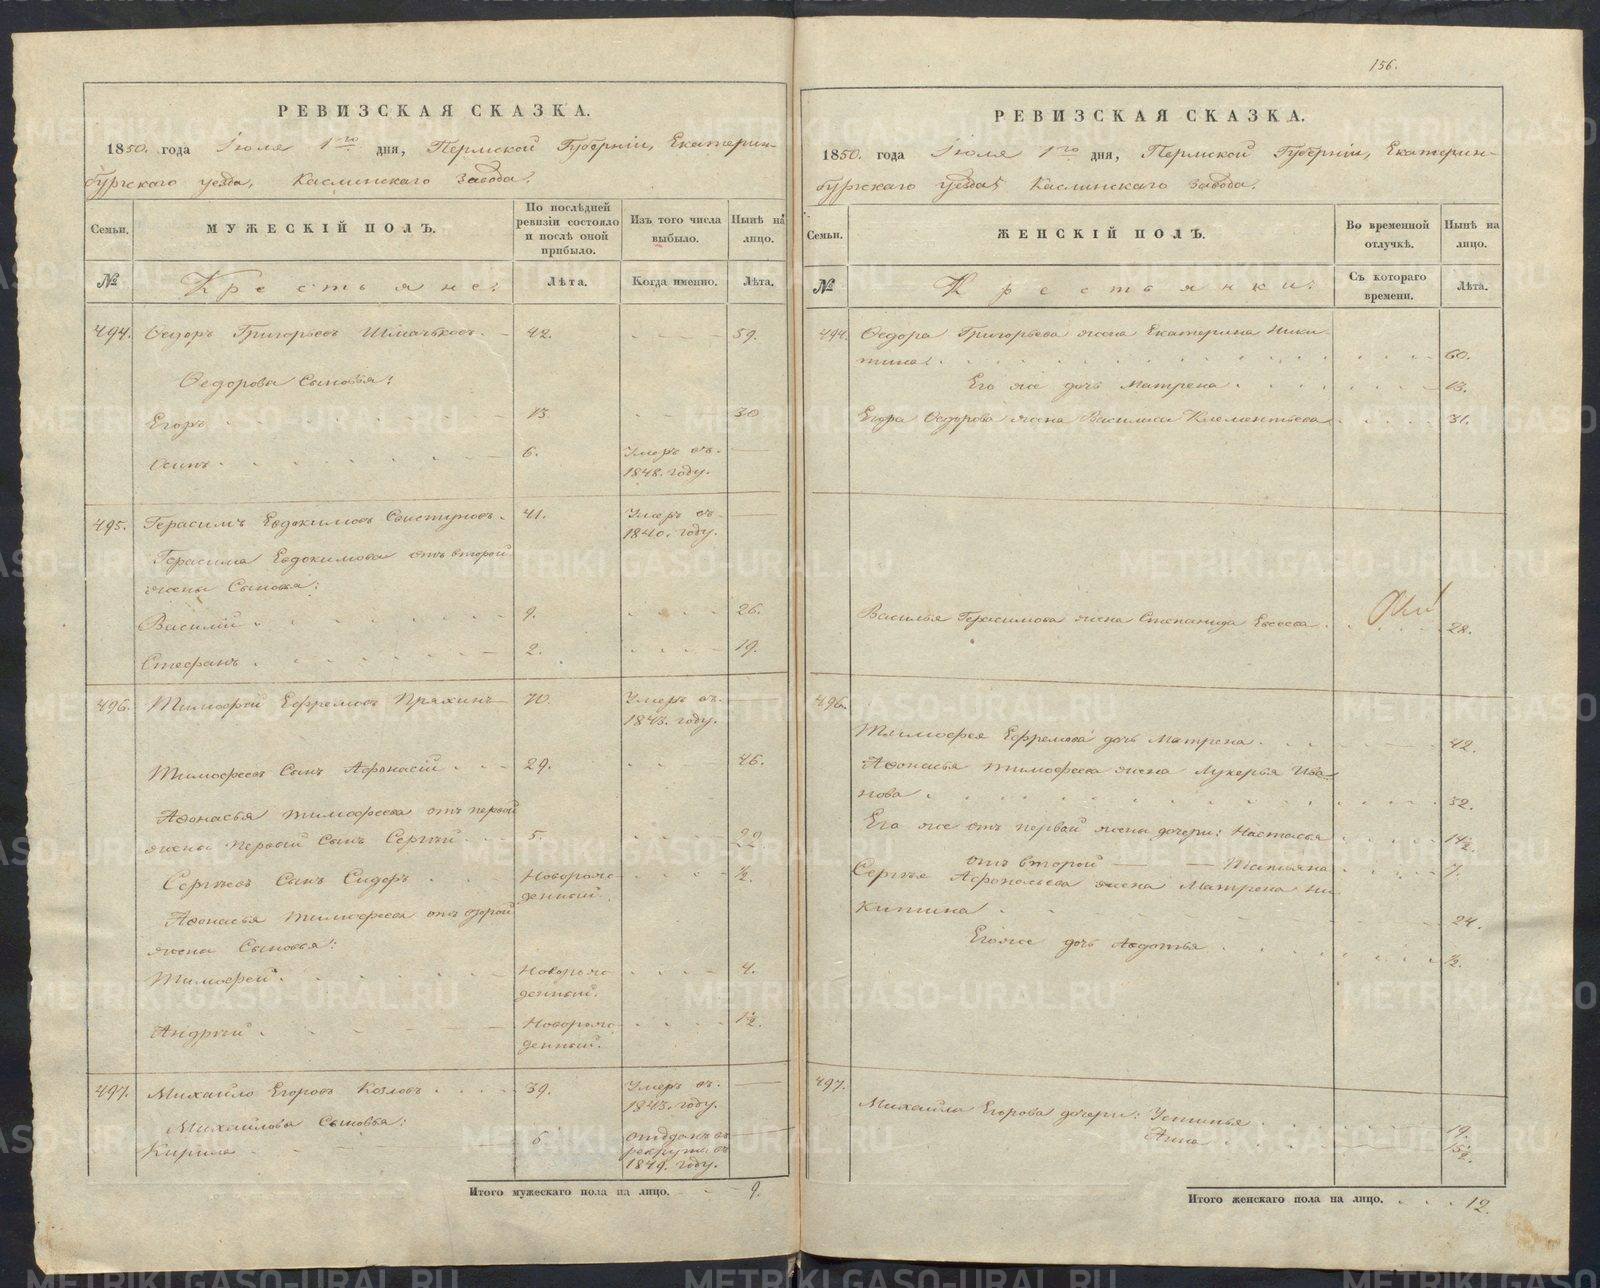 156.
РЕВИЗСКАЯ СКАЗКА.
1850. года Іюля 1го дня, Пермской Губерніи, Екатерин-
бургскаго уезда, Каслинскаго завода.
Семьи. МУЖЕСКІЙ ПОЛЪ. По послѣдней ревизіи состояло и послѣ оной прибыло. Изъ того числа выбыло. Нынѣ на лицо.
№ Крестьяне: Лѣта. Когда именно. Лѣта.
494. Ѳедоръ Григорьевъ 42. 59.
Ѳедорова Сыновья:
Егоръ 13 30
Осипъ 6. Умеръ въ
1848. году.
495. Герасимъ Евдокимовъ Свистуновъ. 41. Умеръ въ
1840. году.
Герасима Евдокимова отъ второй
жены Сыновья:
Василій 9. 26.
Стефанъ 2. 19.
496. Тимофей Ефремовъ Пряхинъ 70. Умеръ въ
1843. году.
Тимофеевъ Сынъ Афонасій 29. 46.
Афонасья Тимофеева отъ первой
жены первый Сынъ Сергѣй 5. 22.
Сергѣевъ Сынъ Сидоръ Новорож-
денный. ½.
Афонасья Тимофеева отъ второй
жены Сыновья:
Тимофей Новорож-
денный. 4.
Андрѣй Новорож-
денный. 1½.
497. Михайло Егоровъ Козловъ 39. Умеръ въ
1843. году.
Михайлова Сыновья:
Кирило 6 отданъ въ
рекруты въ
1849. году.
Итого мужескаго пола на лицо. 9.
РЕВИЗСКАЯ СКАЗКА.
1850. года Іюля 1го дня, Пермской Губерніи, Екатерин-
бургскаго уезда Каслинскаго завода.
Семьи. ЖЕНСКІЙ ПОЛЪ. Во временной отлучкѣ. Нынѣ на лицо.
№ Крестьянки: Съ котораго времени. Лѣта.
494. Ѳедора Григорьева жена Екатерина Ники-
тина 60.
Его же дочь Матрена 13.
Егора Ѳедорова жена Василиса Клементьева 31.
Василья Герасимова жена Степанида Евсеева 28.
496.
Тимофея Ефремова дочь Матрена 42.
Афонасья Тимофеева жена Лукерья Ива-
нова 32.
Его же отъ первой жены дочери: Настасья 14½.
отъ второй — — Татьяна 7.
Сергѣя Афонасьева жена Матрена Ни-
китина 24.
Его же дочь Авдотья ½.
497.
Михайла Егорова дочери: Устинья 19.
Анна 15½.
Итого женскаго пола на лицо. 12.
METRIKI.GASO-URAL.RU